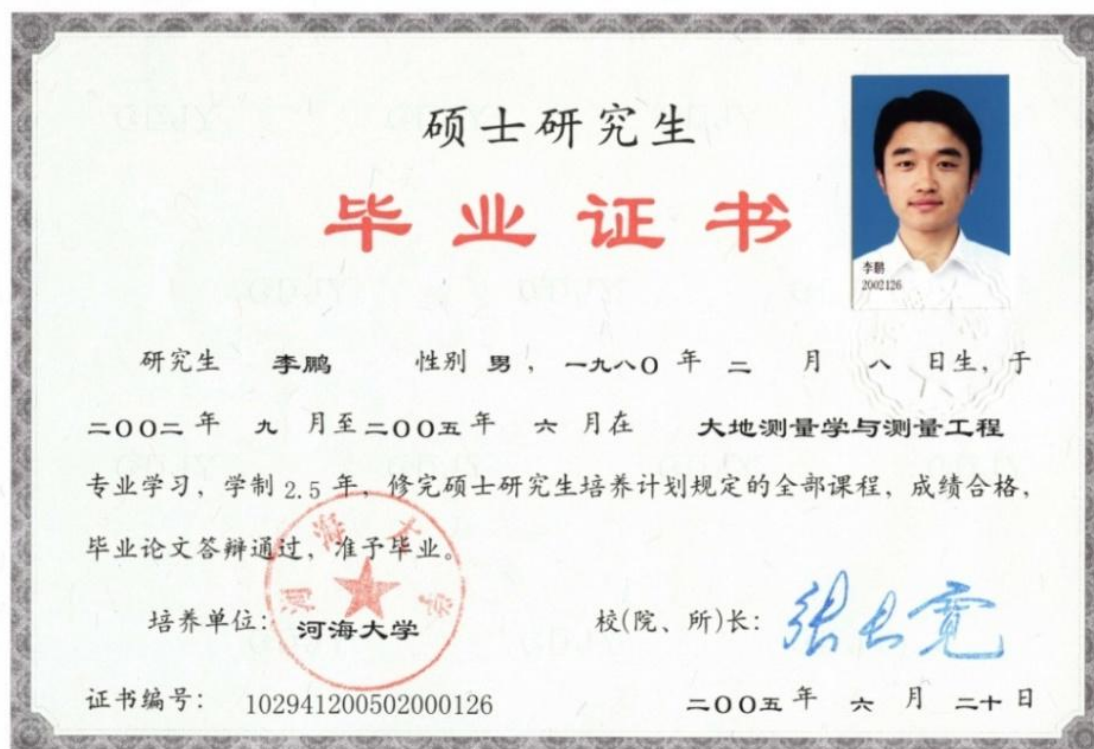 硕士研究生
毕业证书
李鹏
2002126
研究生 李鹏 性别 男，一九八〇 年 二 月 八 日生，于
二〇〇二 年 九 月至 二〇〇五 年 六 月在 大地测量学与测量工程
专业学习，学制 2.5 年，修完硕士研究生培养计划规定的全部课程，成绩合格，
毕业论文答辩通过，准予毕业。
河海大学
培养单位：河海大学 校(院、所)长：张长宽
证书编号：102941200502000126 二〇〇五 年 六 月 二十 日